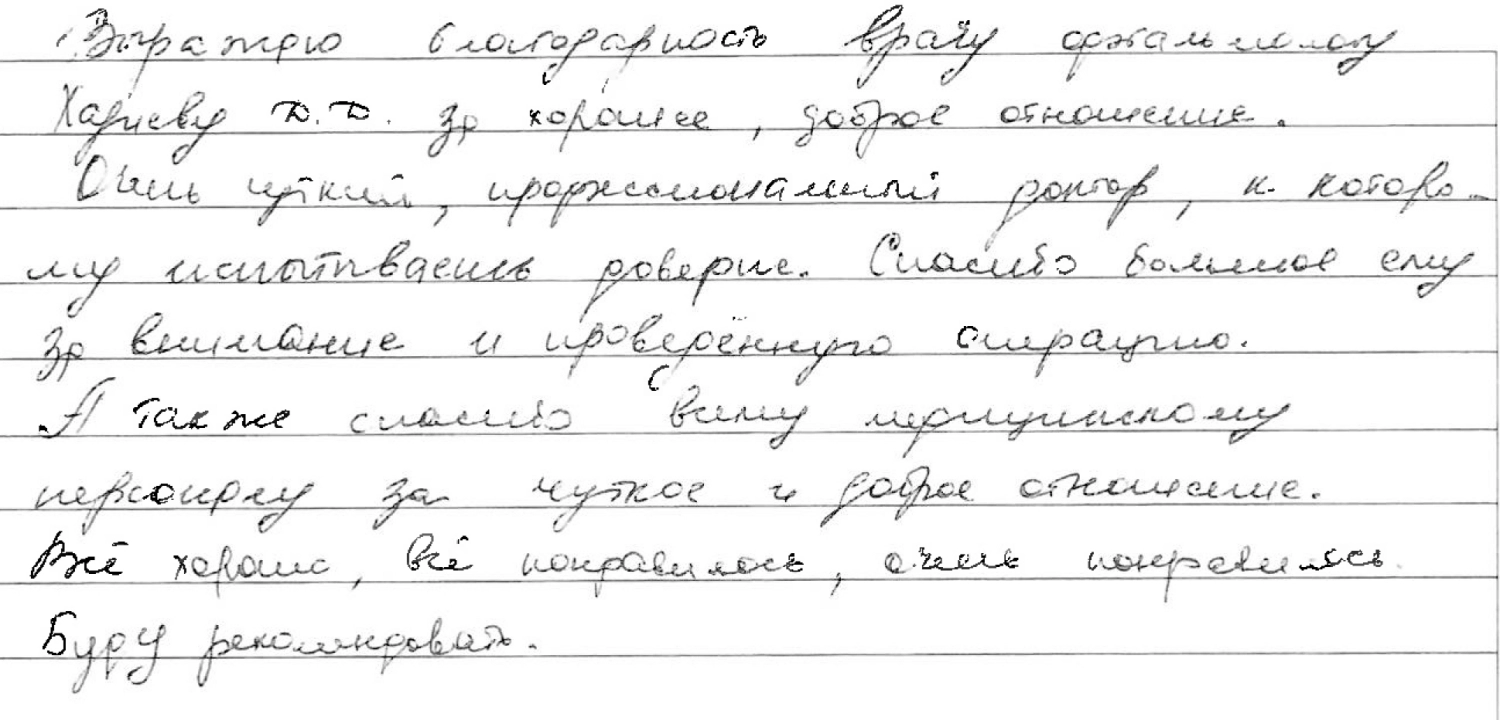 Выражаю благодарность врачу офтальмологу
Хадиеву Д.Д. за хорошее, доброе отношение.
Очень чуткий, профессиональный доктор, к которо-
му испытываешь доверие. Спасибо большое ему
за внимание и проведённую операцию.
А также спасибо всему медицинскому
персоналу за чуткое и доброе отношение.
Всё хорошо, всё понравилось, очень понравилось.
Буду рекомендовать.